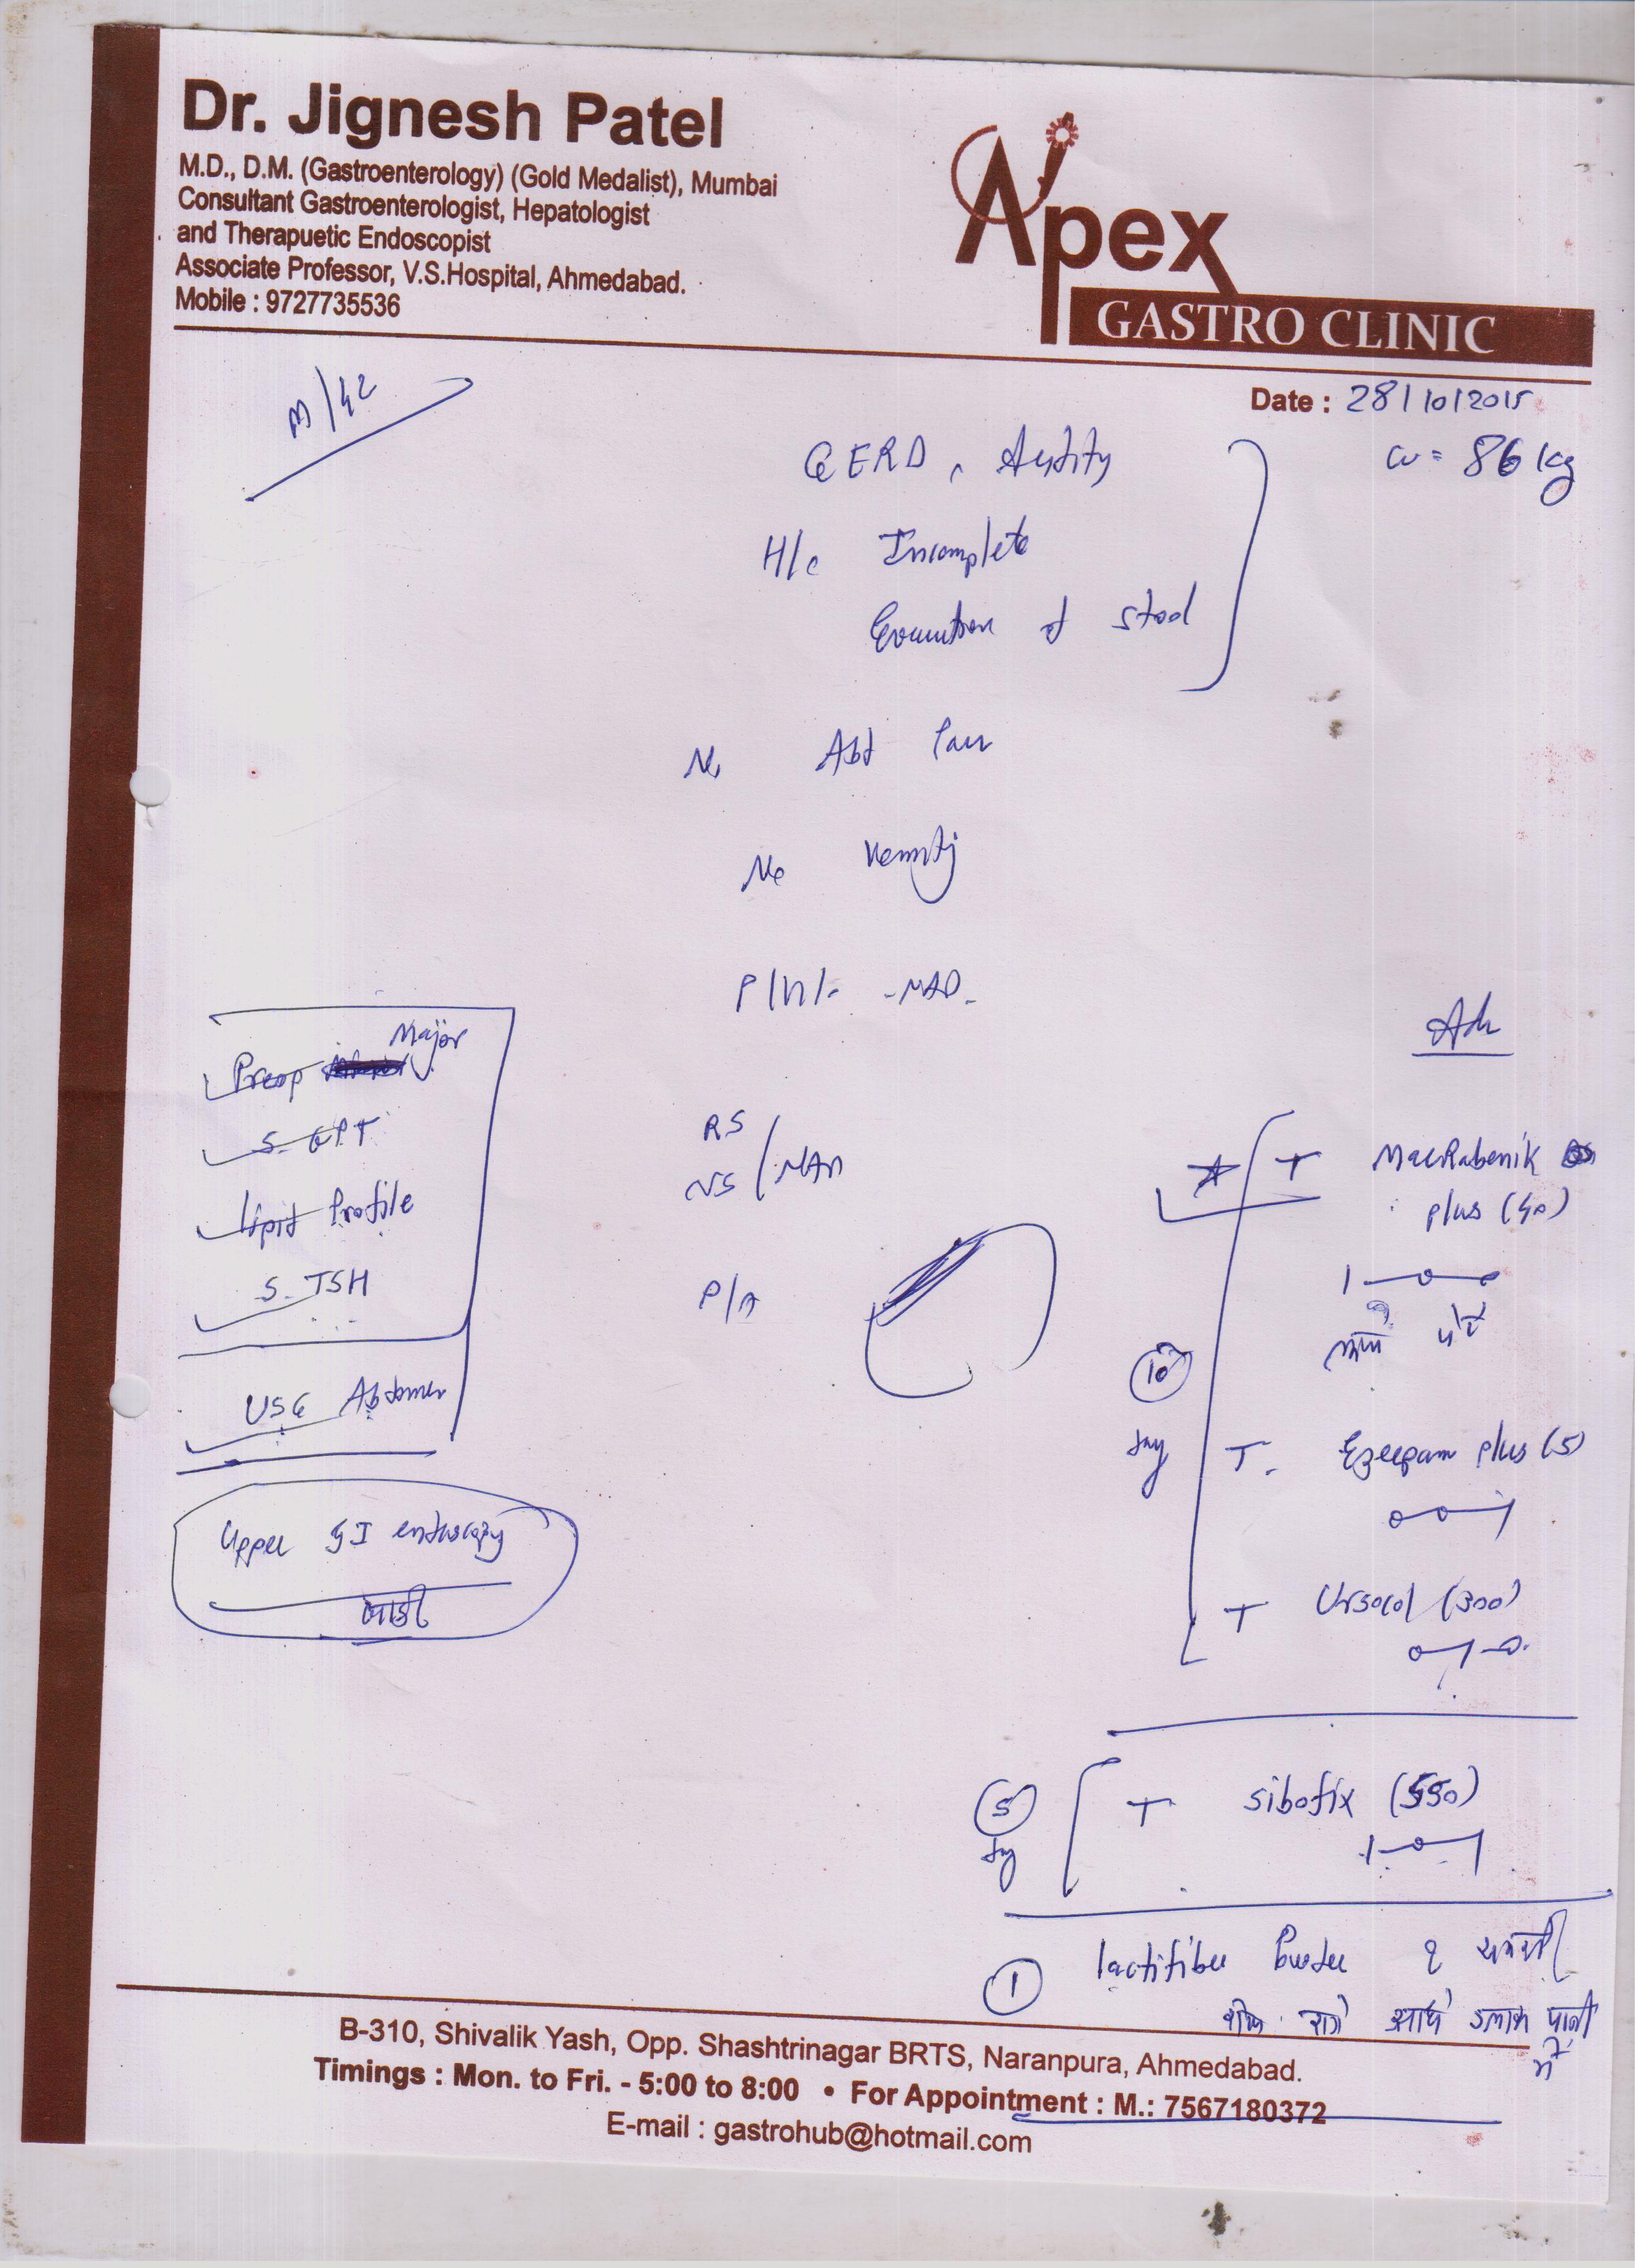 Dr. Jignesh Patel
M.D., D.M. (Gastroenterology) (Gold Medalist), Mumbai
Consultant Gastroenterologist, Hepatologist
and Therapuetic Endoscopist
Associate Professor, V.S.Hospital, Ahmedabad.
Mobile : 9727735536
Apex
GASTRO CLINIC
Date : 28/10/2015
M/42
w = 86 kg
GERD,
H/o Incomplete
Evacuation of stool
No Abd Pain
No
P/H/- -NAD-
RS
/NAD
P/A
Preop Major
S. GPT
Lipid Profile
S. TSH
USG Abdomen
Upper GI endoscopy
Adv
T MacRabonik
plus (40)
1-0-0
10
day
T. Ezeepam plus (5)
0-0-1
T Ursocol (300)
0-1-0
5
day
T Sibofix (550)
1-0-1
1
lactifiber Powder १ चमची
रोज रात्रे आधे ग्लास पानी
में
B-310, Shivalik Yash, Opp. Shashtrinagar BRTS, Naranpura, Ahmedabad.
Timings : Mon. to Fri. - 5:00 to 8:00 • For Appointment : M.: 7567180372
E-mail : gastrohub@hotmail.com